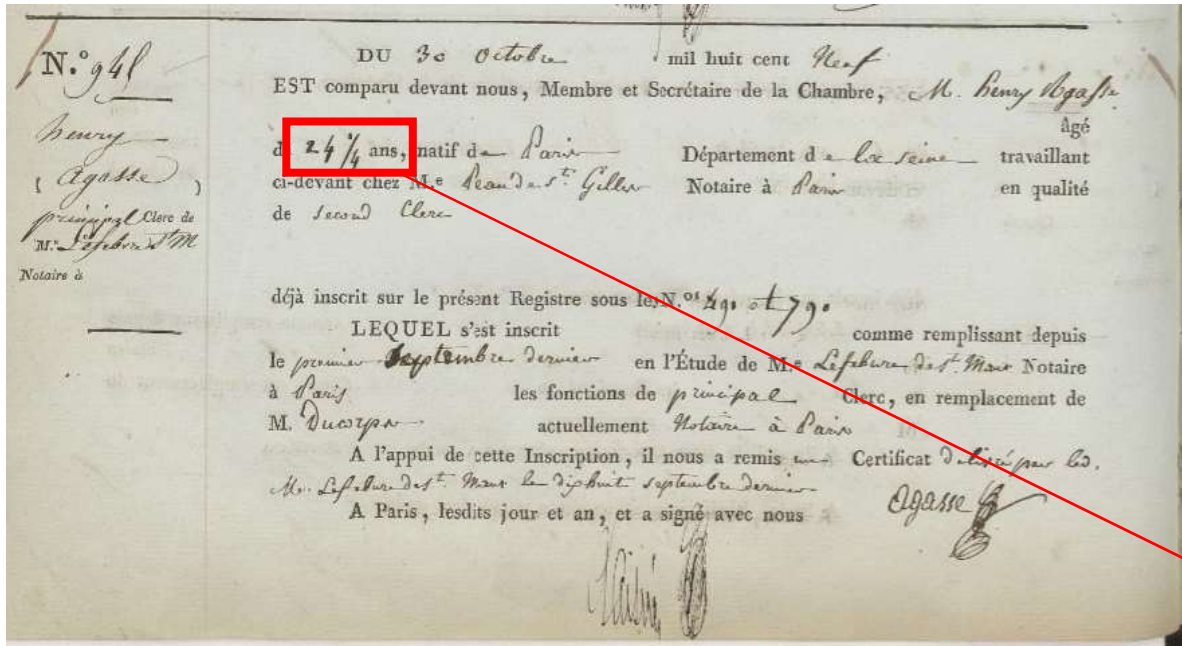 N.º 941
DU 30 octobre mil huit cent Neuf
EST comparu devant nous, Membre et Secrétaire de la Chambre, M. henry Agasse
âgé
de 24 1/4 ans, natif de Paris Département de la seine travaillant
ci-devant chez M.e Peau de st. Gilles Notaire à Paris en qualité
de second Clerc
henry
( Agasse )
principal Clerc de
M.e Lefebvre St M
Notaire à
déjà inscrit sur le présent Registre sous les N.os 490 et 790
LEQUEL s'est inscrit comme remplissant depuis
le premier Septembre dernier en l'Étude de M.e Lefebvre de st. Maur Notaire
à Paris les fonctions de principal Clerc, en remplacement de
M. Ducorps actuellement Notaire à Paris
A l'appui de cette Inscription, il nous a remis un Certificat délivré par led.
Me. Lefebvre de st. Maur le dix huit septembre dernier
A Paris, lesdits jour et an, et a signé avec nous
Agasse